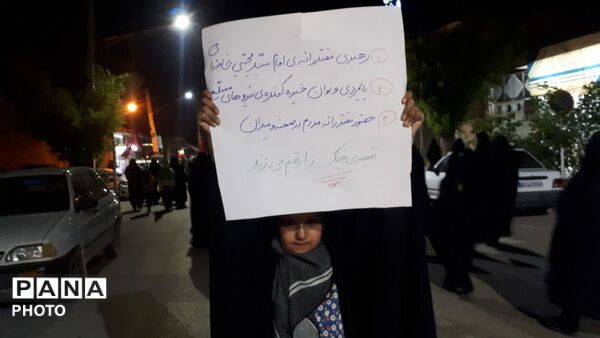 ① رهبری مقتدرانه‌ی امام سید مجتبی خامنه‌ای
② پایمردی و توان خیره کننده‌ی نیروهای مسلح
③ حضور مقتدرانه مردم در صحنه و میدان
نتیجه‌ی جنگ را رقم می زند
PANA
PHOTO